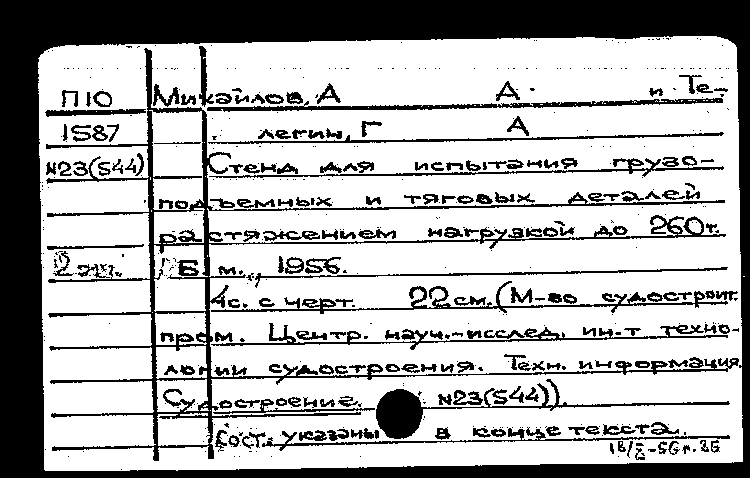 П10 Михайлов, А А. и Те-
1587 легин, Г А
N23(544) Стенд для испытания грузо-
подъемных и тяговых деталей
растяжением нагрузкой до 260т.
2 экз. Б. м., 1956.
4с. с черт. 22 см. (М-во судостроит.
пром. Центр. науч.-исслед. ин-т техно-
логии судостроения. Техн. информация.
Судостроение. N23(544)).
Сост. указаны в конце текста.